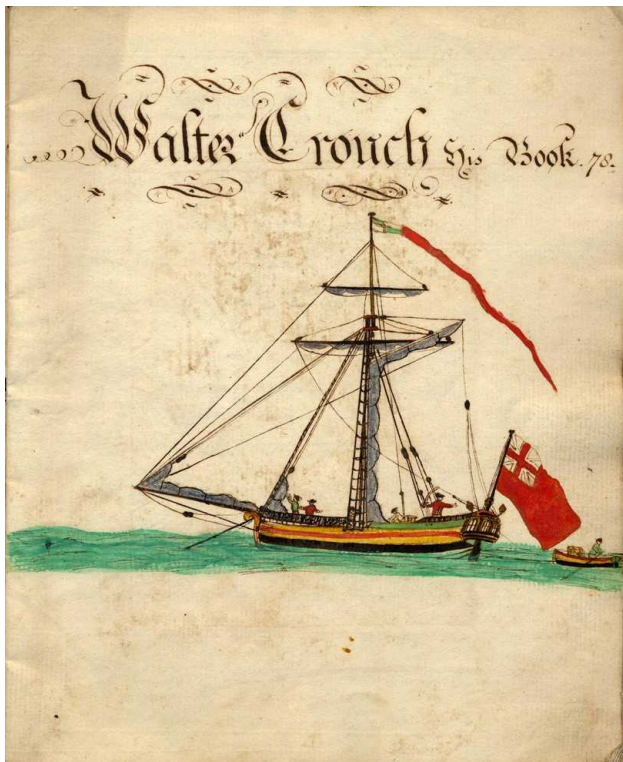 Walter Crouch His Book. 78.